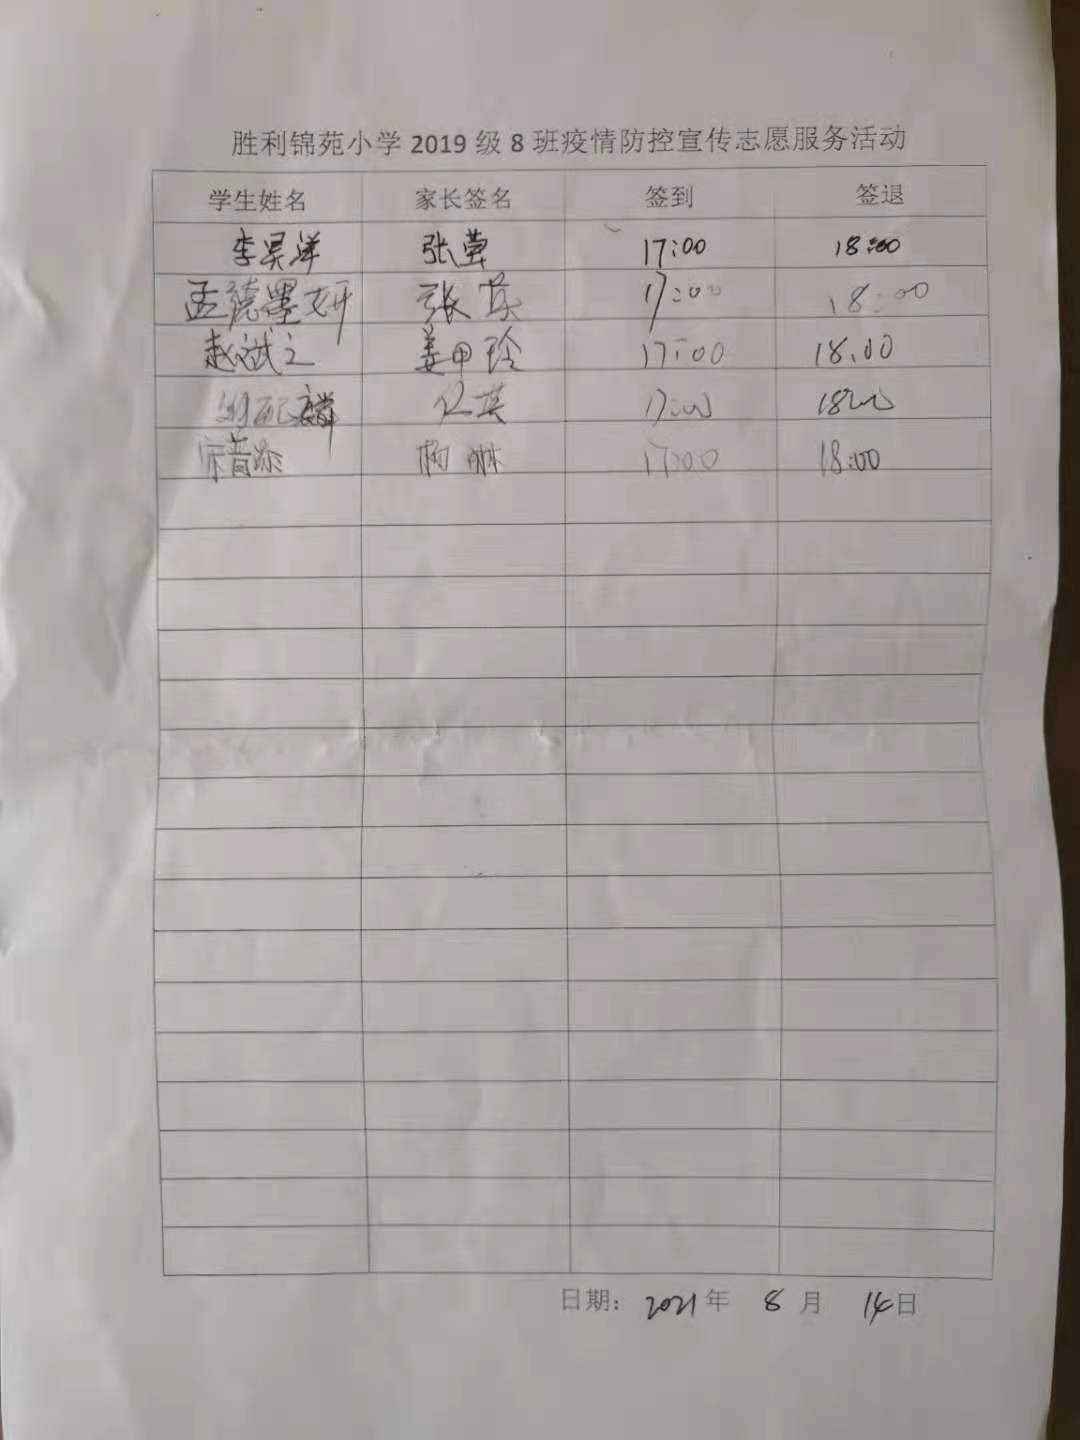 胜利锦苑小学2019级8班疫情防控宣传志愿服务活动
学生姓名 家长签名 签到 签退
李昊洋 张莹 17:00 18:00
孟德墨妍 张英 17:00 18:00
赵斌之 姜甲玲 17:00 18:00
17:00 18:00
宋音添 杨琳 17:00 18:00
日期：2021年 8月 14日